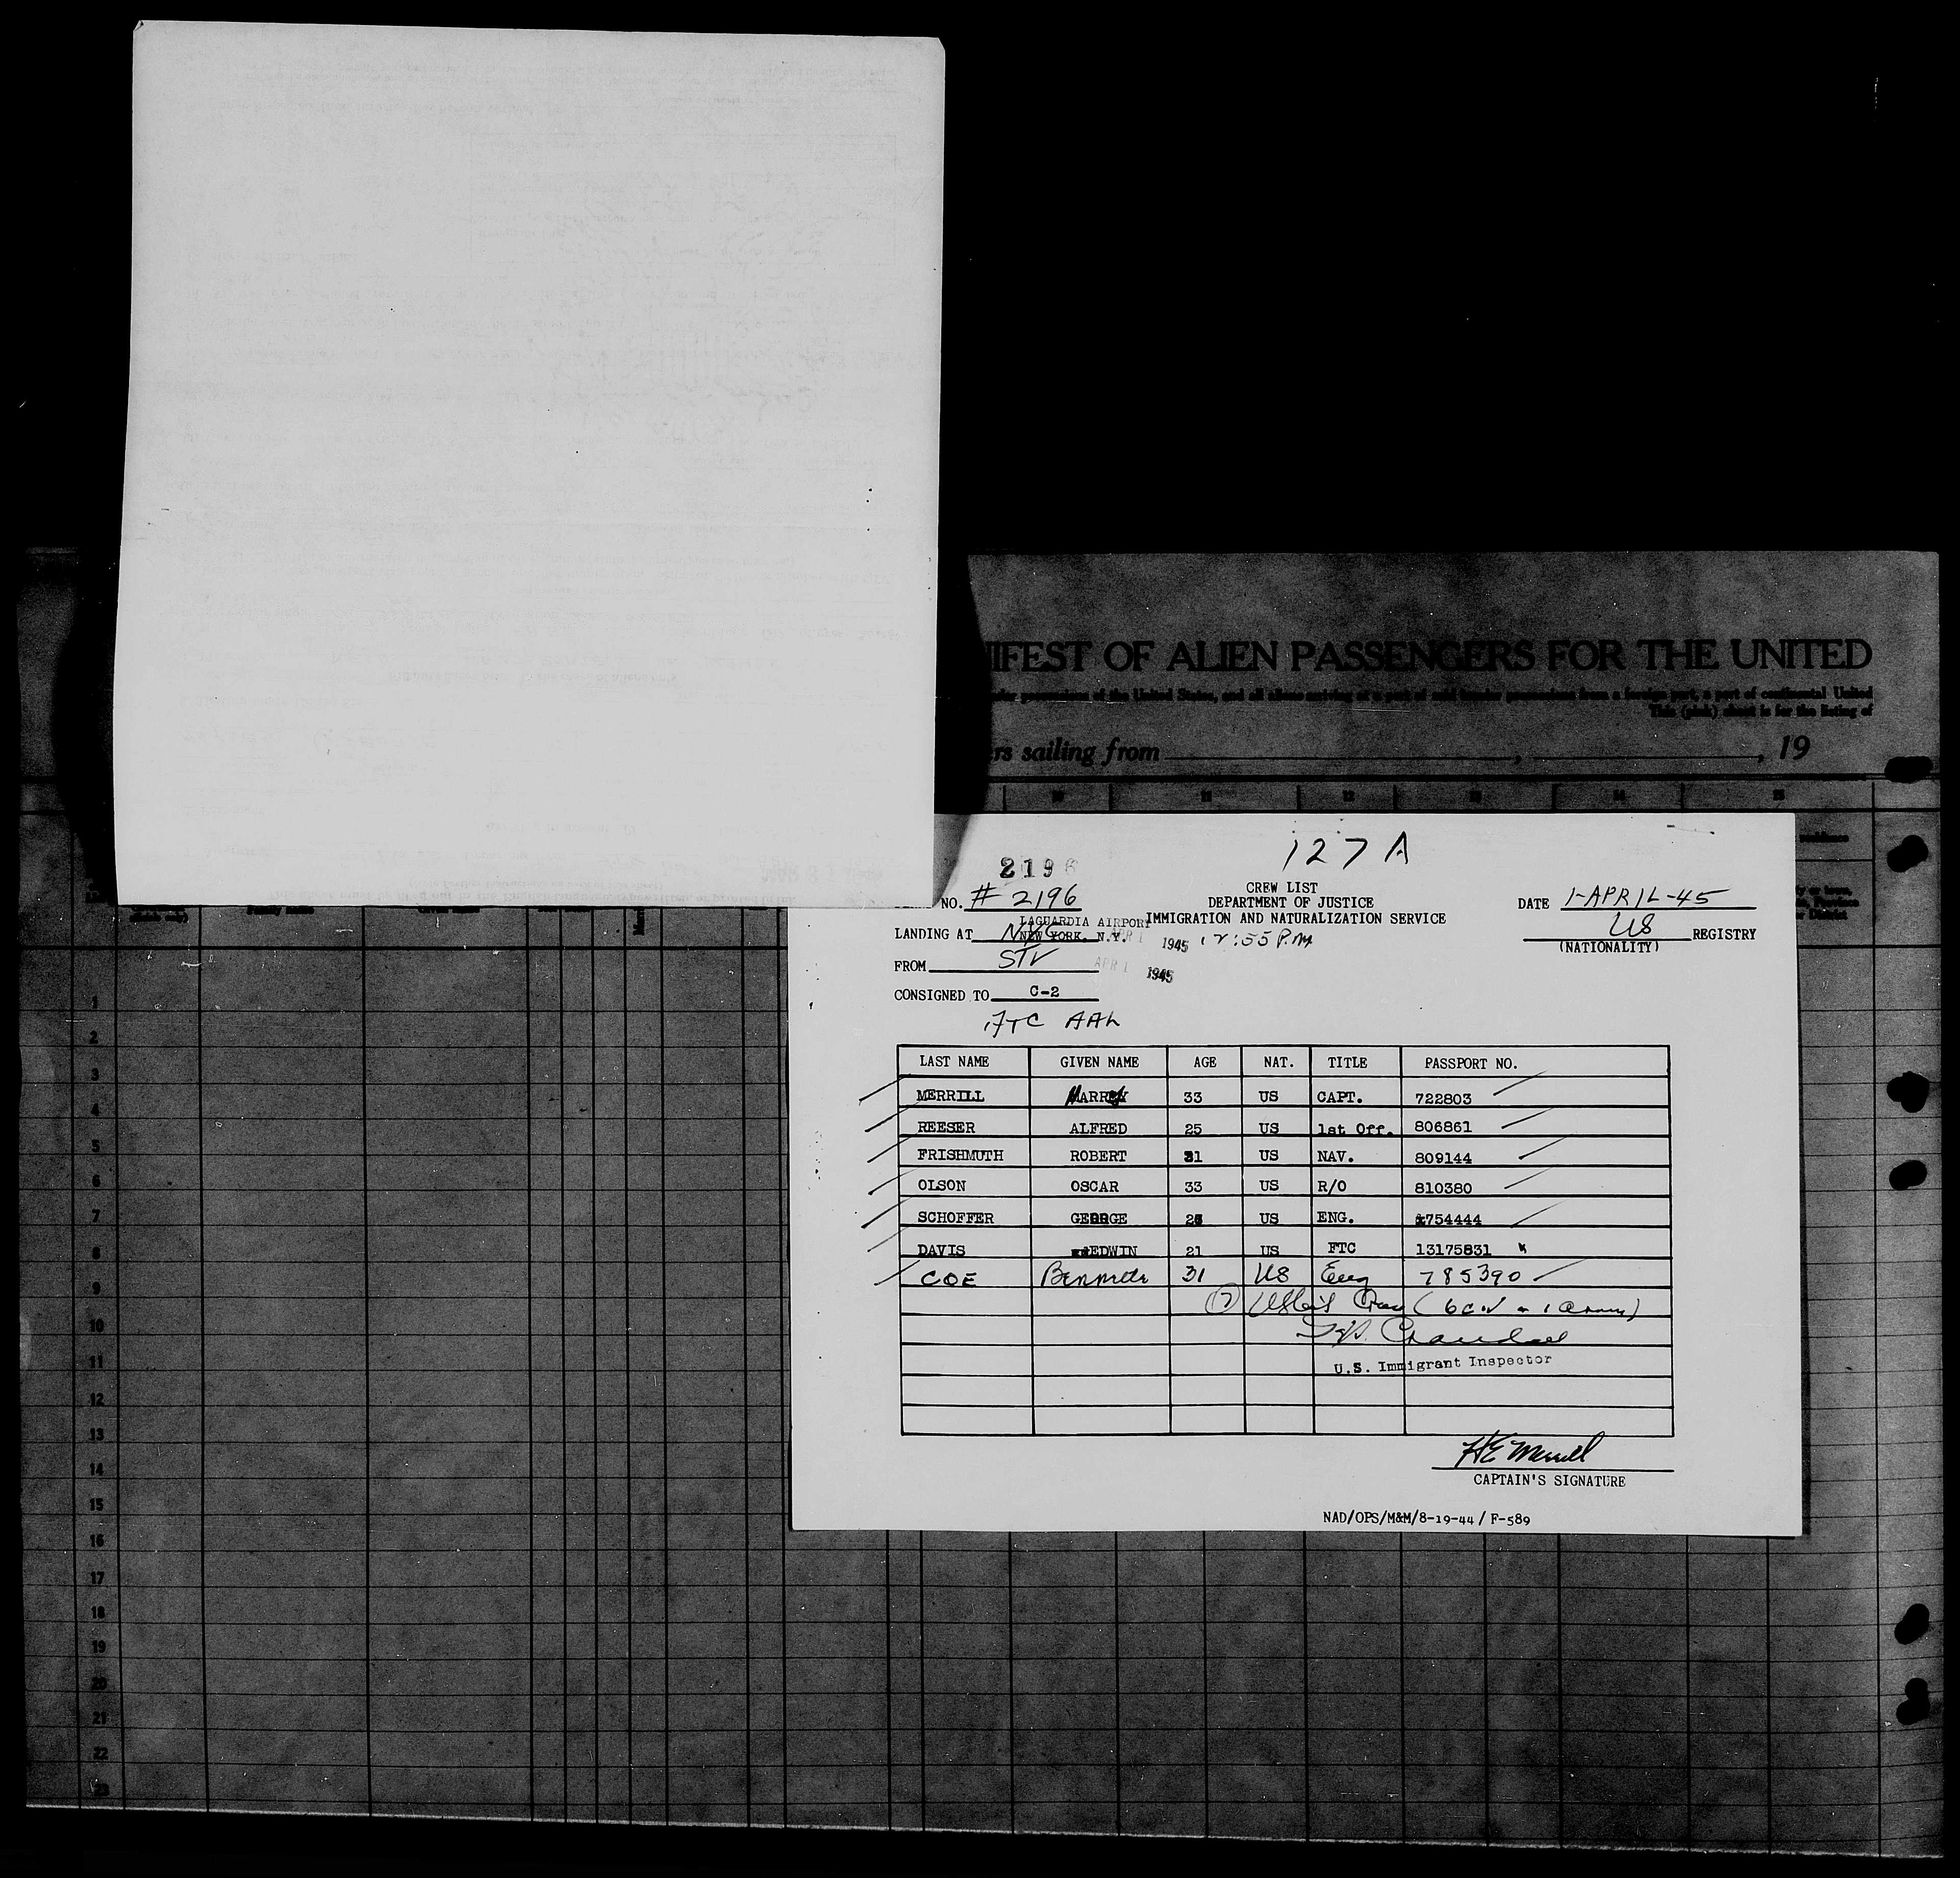 IFEST OF ALIEN PASSENGERS FOR THE UNITED
possessions of the United States, and all aliens arriving at a port of said insular possessions from a foreign port, a port of continental United
This (pink) sheet is for the listing of
rs sailing from , , 19
10 11 12 13 14 15
127 A
219
CREW LIST
NO. # 2196 DEPARTMENT OF JUSTICE DATE 1-APRIL-45
LAGUARDIA AIRPORT IMMIGRATION AND NATURALIZATION SERVICE US
LANDING AT NYC NEW YORK, N.Y. APR 1 1945 12:55 P.M REGISTRY
(NATIONALITY)
FROM STV APR 1 1945
CONSIGNED TO C-2
FTC AAL
LAST NAME GIVEN NAME AGE NAT. TITLE PASSPORT NO.
MERRILL 33 US CAPT. 722803
REESER ALFRED 25 US 1st Off. 806861
FRISHMUTH ROBERT 31 US NAV. 809144
OLSON OSCAR 33 US R/O 810380
SCHOFFER GEORGE US ENG. 754444
DAVIS EDWIN 21 US FTC 13175831
COE Bennett 31 US Eng 785390
(7)
U.S. Immigrant Inspector
HE Merrill
CAPTAIN'S SIGNATURE
NAD/OPS/M&M/8-19-44/ F-589
1
2
3
4
5
6
7
8
9
10
11
12
13
14
15
16
17
18
19
20
21
22
23